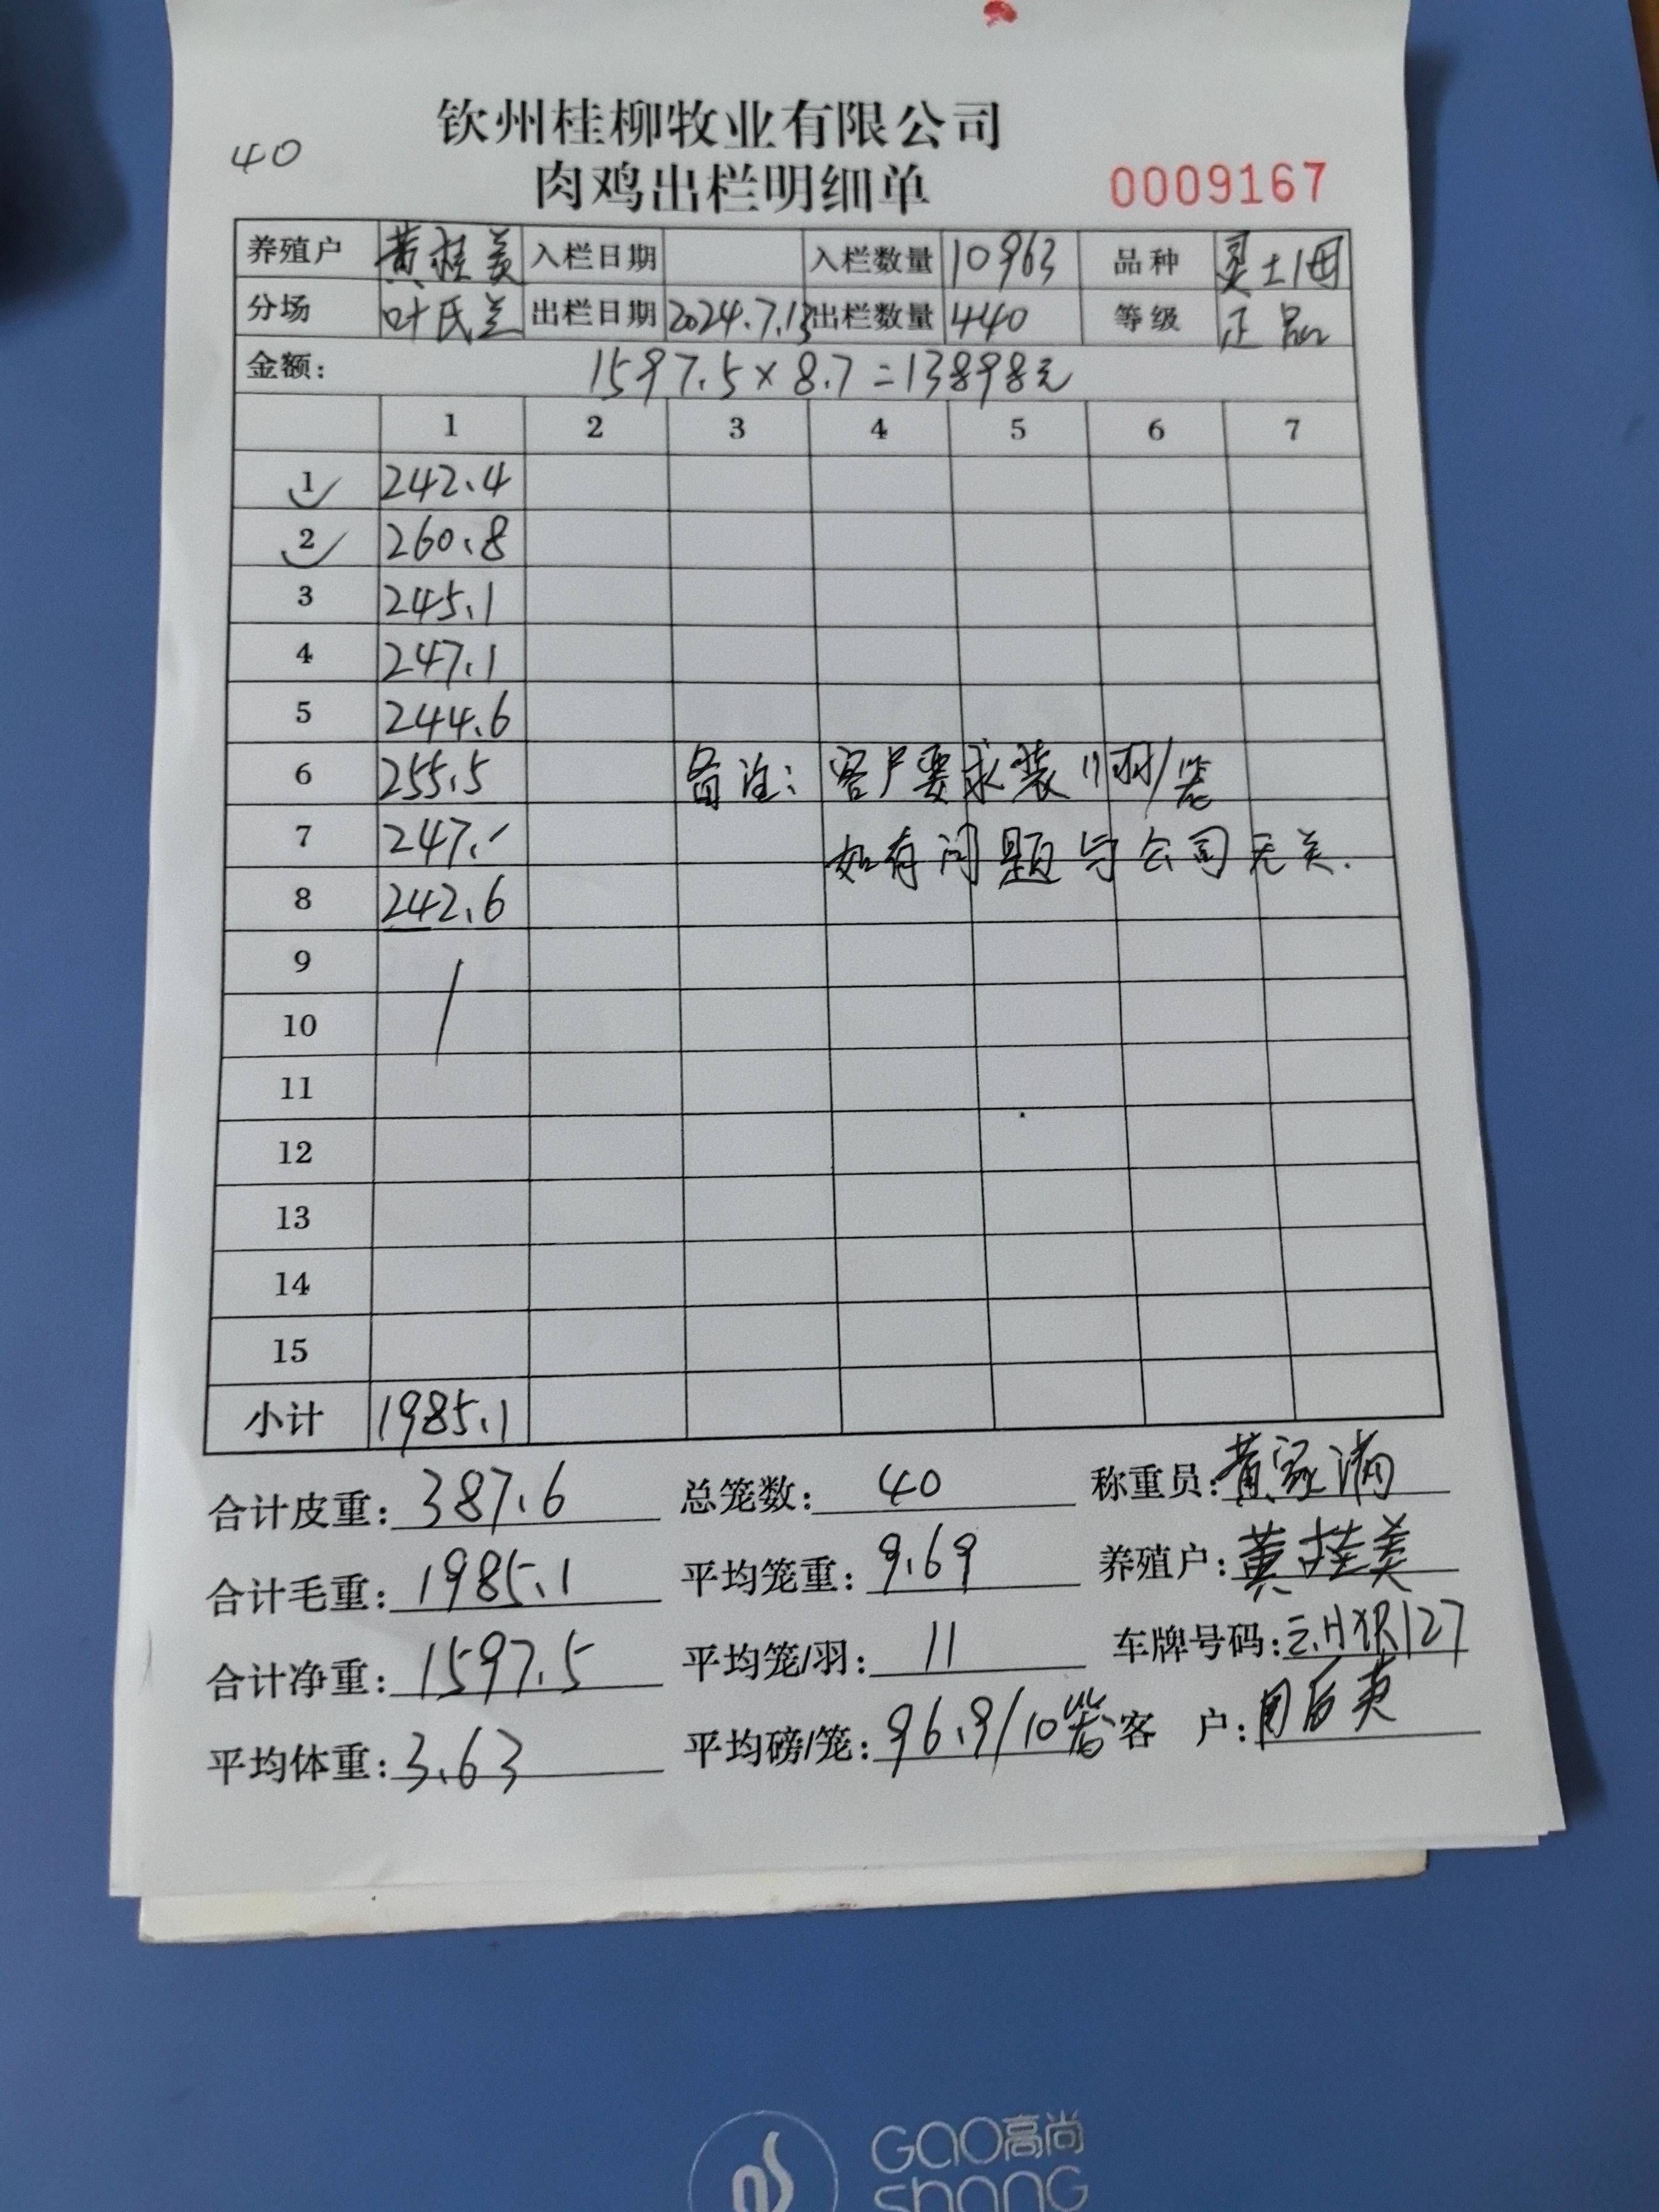 40
钦州桂柳牧业有限公司
肉鸡出栏明细单
0009167
养殖户 黄桂美 入栏日期 入栏数量 10963 品种 灵土1母
分场 叶氏兰 出栏日期 2024.7.13 出栏数量 440 等级 正品
金额: 1597.5×8.7=13898元
1 2 3 4 5 6 7
1 242.4
2 260.8
3 245.1
4 247.1
5 244.6
6 255.5 备注: 客户要求装11羽/笼
7 247.- 如有问题与公司无关.
8 242.6
9
10
11
12
13
14
15
小计 1985.1
合计皮重: 387.6 总笼数: 40 称重员: 黄家满
合计毛重: 1985.1 平均笼重: 9.69 养殖户: 黄桂美
合计净重: 1597.5 平均笼/羽: 11 车牌号码: 127
平均体重: 3.63 平均磅/笼: 96.9/10笼 客 户:
GAO高尚
shang